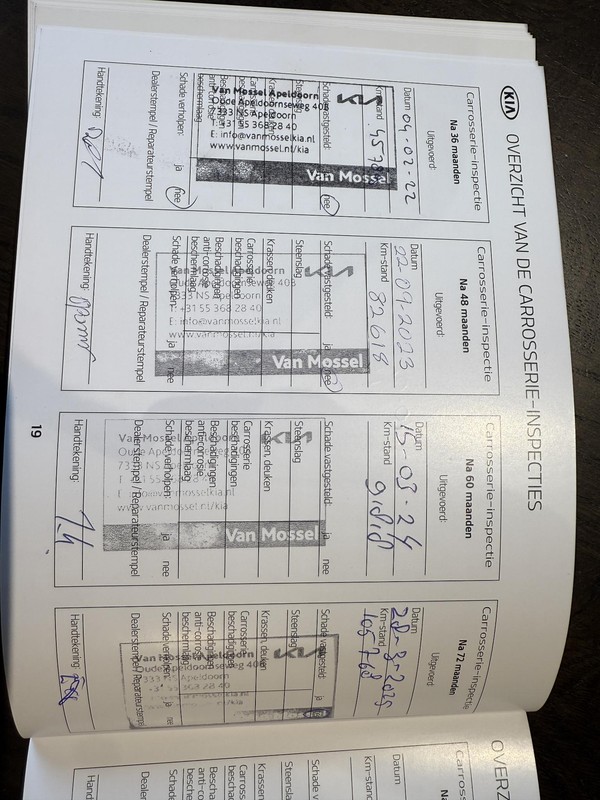 KIA OVERZICHT VAN DE CARROSSERIE-INSPECTIES
Carrosserie-inspectie
Na 36 maanden
Uitgevoerd:
Datum 04-02-22
Km-stand
Schade vastgesteld: nee
Steenslag
Schade verholpen: ja nee
Dealerstempel / Reparateurstempel
Handtekening:
KIA
Van Mossel
Van Mossel Apeldoorn
Oude Apeldoornseweg 40B
7333 NS Apeldoorn
T: +31 55 368 28 40
E: info@vanmosselkia.nl
www.vanmossel.nl/kia
Carrosserie-inspectie
Na 48 maanden
Uitgevoerd:
Datum 22-09-2023
Km-stand 82618
Schade vastgesteld: ja nee
Steenslag
Krassen, deuken
Carrosserie
beschadigingen
Beschadigingen
anti-corrosie
beschermlaag
Schade verholpen: ja nee
Dealerstempel / Reparateurstempel
Handtekening:
KIA
Van Mossel
Van Mossel Apeldoorn
Oude Apeldoornseweg 40B
7333 NS Apeldoorn
T: +31 55 368 28 40
E: info@vanmosselkia.nl
www.vanmossel.nl/kia
Carrosserie-inspectie
Na 60 maanden
Uitgevoerd:
Datum 15-03-24
Km-stand
Schade vastgesteld: ja nee
Steenslag
Krassen, deuken
Carrosserie
beschadigingen
Beschadigingen
anti-corrosie
beschermlaag
Schade verholpen: ja nee
Dealerstempel / Reparateurstempel
Handtekening:
KIA
Van Mossel
Van Mossel Apeldoorn
Oude Apeldoornseweg 40B
www.vanmossel.nl/kia
Carrosserie-inspectie
Na 72 maanden
Uitgevoerd:
Datum 28-3-2025
Km-stand 105768
Schade vastgesteld: ja
Steenslag
Krassen, deuken
Carrosserie
beschadigingen
Beschadigingen
anti-corrosie
beschermlaag
Schade verholpen: ja
Dealerstempel / Reparateurstempel
Handtekening:
KIA
Van Mossel Apeldoorn
Oude Apeldoornseweg 40B
7333 NS Apeldoorn
19
OVERZ
Carrosse
Na
Datum
Km-stand
Schade v
Steensla
Krassen
Carross
bescha
Bescha
anti-co
besche
Schade
Dealer
Handt